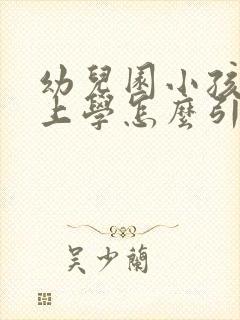 幼兒園小孩
上學怎麼引
吳少蘭